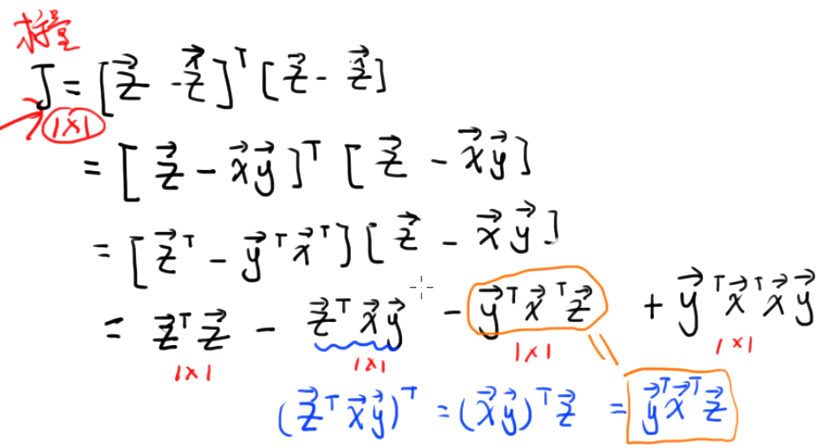 标量
J = [z⃗ - ẑ⃗]ᵀ [z⃗ - ẑ⃗]
1×1
= [z⃗ - x⃗y⃗]ᵀ [z⃗ - x⃗y⃗]
= [z⃗ᵀ - y⃗ᵀx⃗ᵀ] [z⃗ - x⃗y⃗]
= z⃗ᵀz⃗ - z⃗ᵀx⃗y⃗ - y⃗ᵀx⃗ᵀz⃗ + y⃗ᵀx⃗ᵀx⃗y⃗
1×1 1×1 1×1 1×1
(z⃗ᵀx⃗y⃗)ᵀ = (x⃗y⃗)ᵀz⃗ = y⃗ᵀx⃗ᵀz⃗